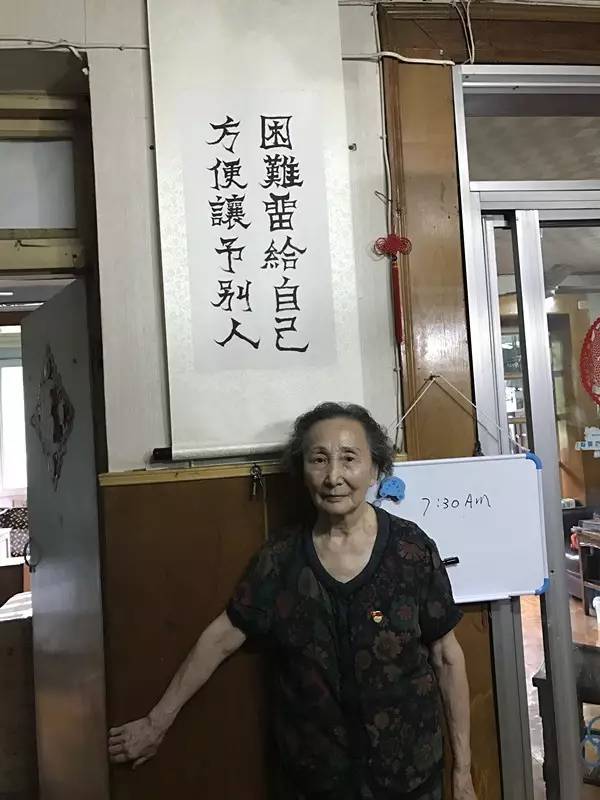 困難畱給自己
方便讓予别人
7:30 AM